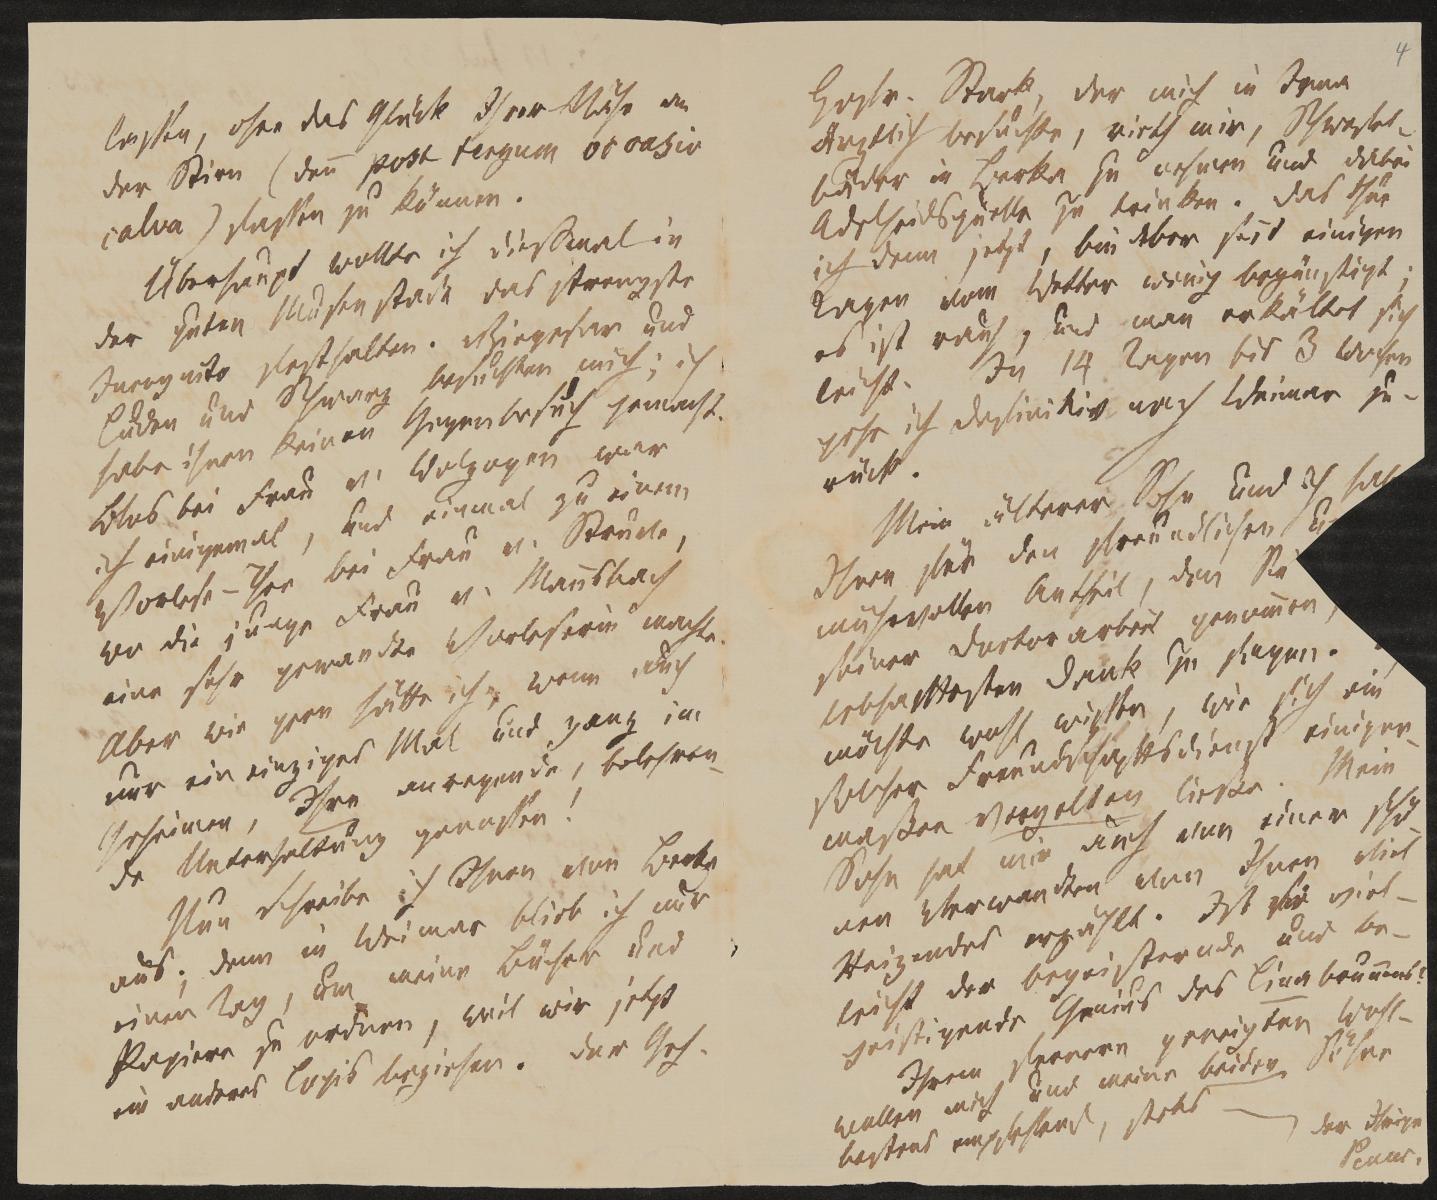 lassen, ohne das Glück Ihrer Nähe an
der Stirn (deñ post tergum occasio
calva) fassen zu können.
Überhaupt wollte ich dießmal in
der guten Musenstadt das strengste
Incognito festhalten. Ziegesar und
Luden und Schwarz besuchten mich; ich
habe ihnen keinen Gegenbesuch gemacht.
Blos bei Frau v. Wolzogen war
ich einigemal, und einmal zu einem
Vorlese-Thee bei Frau v. Struve,
wo die junge Frau v. Mansbach
eine sehr gewandte Vorleserin machte.
Aber wie gern hätte ich, wenn auch
nur ein einziges Mal und ganz im
Geheimen, Ihre anregende, belehren-
de Unterhaltung genossen!
Nun schreibe ich Ihnen von Berka
aus; denn in Weimar blieb ich nur
einen Tag, um meine Bücher und
Papiere zu ordnen, weil wir jetzt
ein anderes Logis beziehen. Der Geh.
4
Hofr. Stark, der mich in Jena
ärztlich besuchte, rieth mir, Schwefel-
bäder in Berka zu nehmen und dabei
Adelheidsquelle zu trinken. Das thue
ich denn jetzt, bin aber seit einigen
Tagen vom Wetter wenig begünstigt;
es ist rauh, und man erkältet sich
leicht. In 14 Tagen bis 3 Wochen
gehe ich definitiv nach Weimar zu-
rück.
Mein älterer Sohn und ich
Ihnen für den freundlichen
mühevollen Antheil, den Sie
seiner Doctorarbeit genom̄en,
lebhaftesten Dank zu sagen.
möchte wohl wissen, wie sich ein
solcher Freundschaftsdienst einiger-
maßen vergelten ließe. Mein
Sohn hat mir auch von einer schö-
nen Verwandten von Ihnen viel
Reizendes erzählt. Ist sie viel-
leicht der begeisternde und be-
geistigende Genius des Linabrunnens?
Ihrem ferneren geneigten Wohl-
wollen mich und meine beiden Söhne
bestens empfehlend, stets — der Ihrige
Peuc.